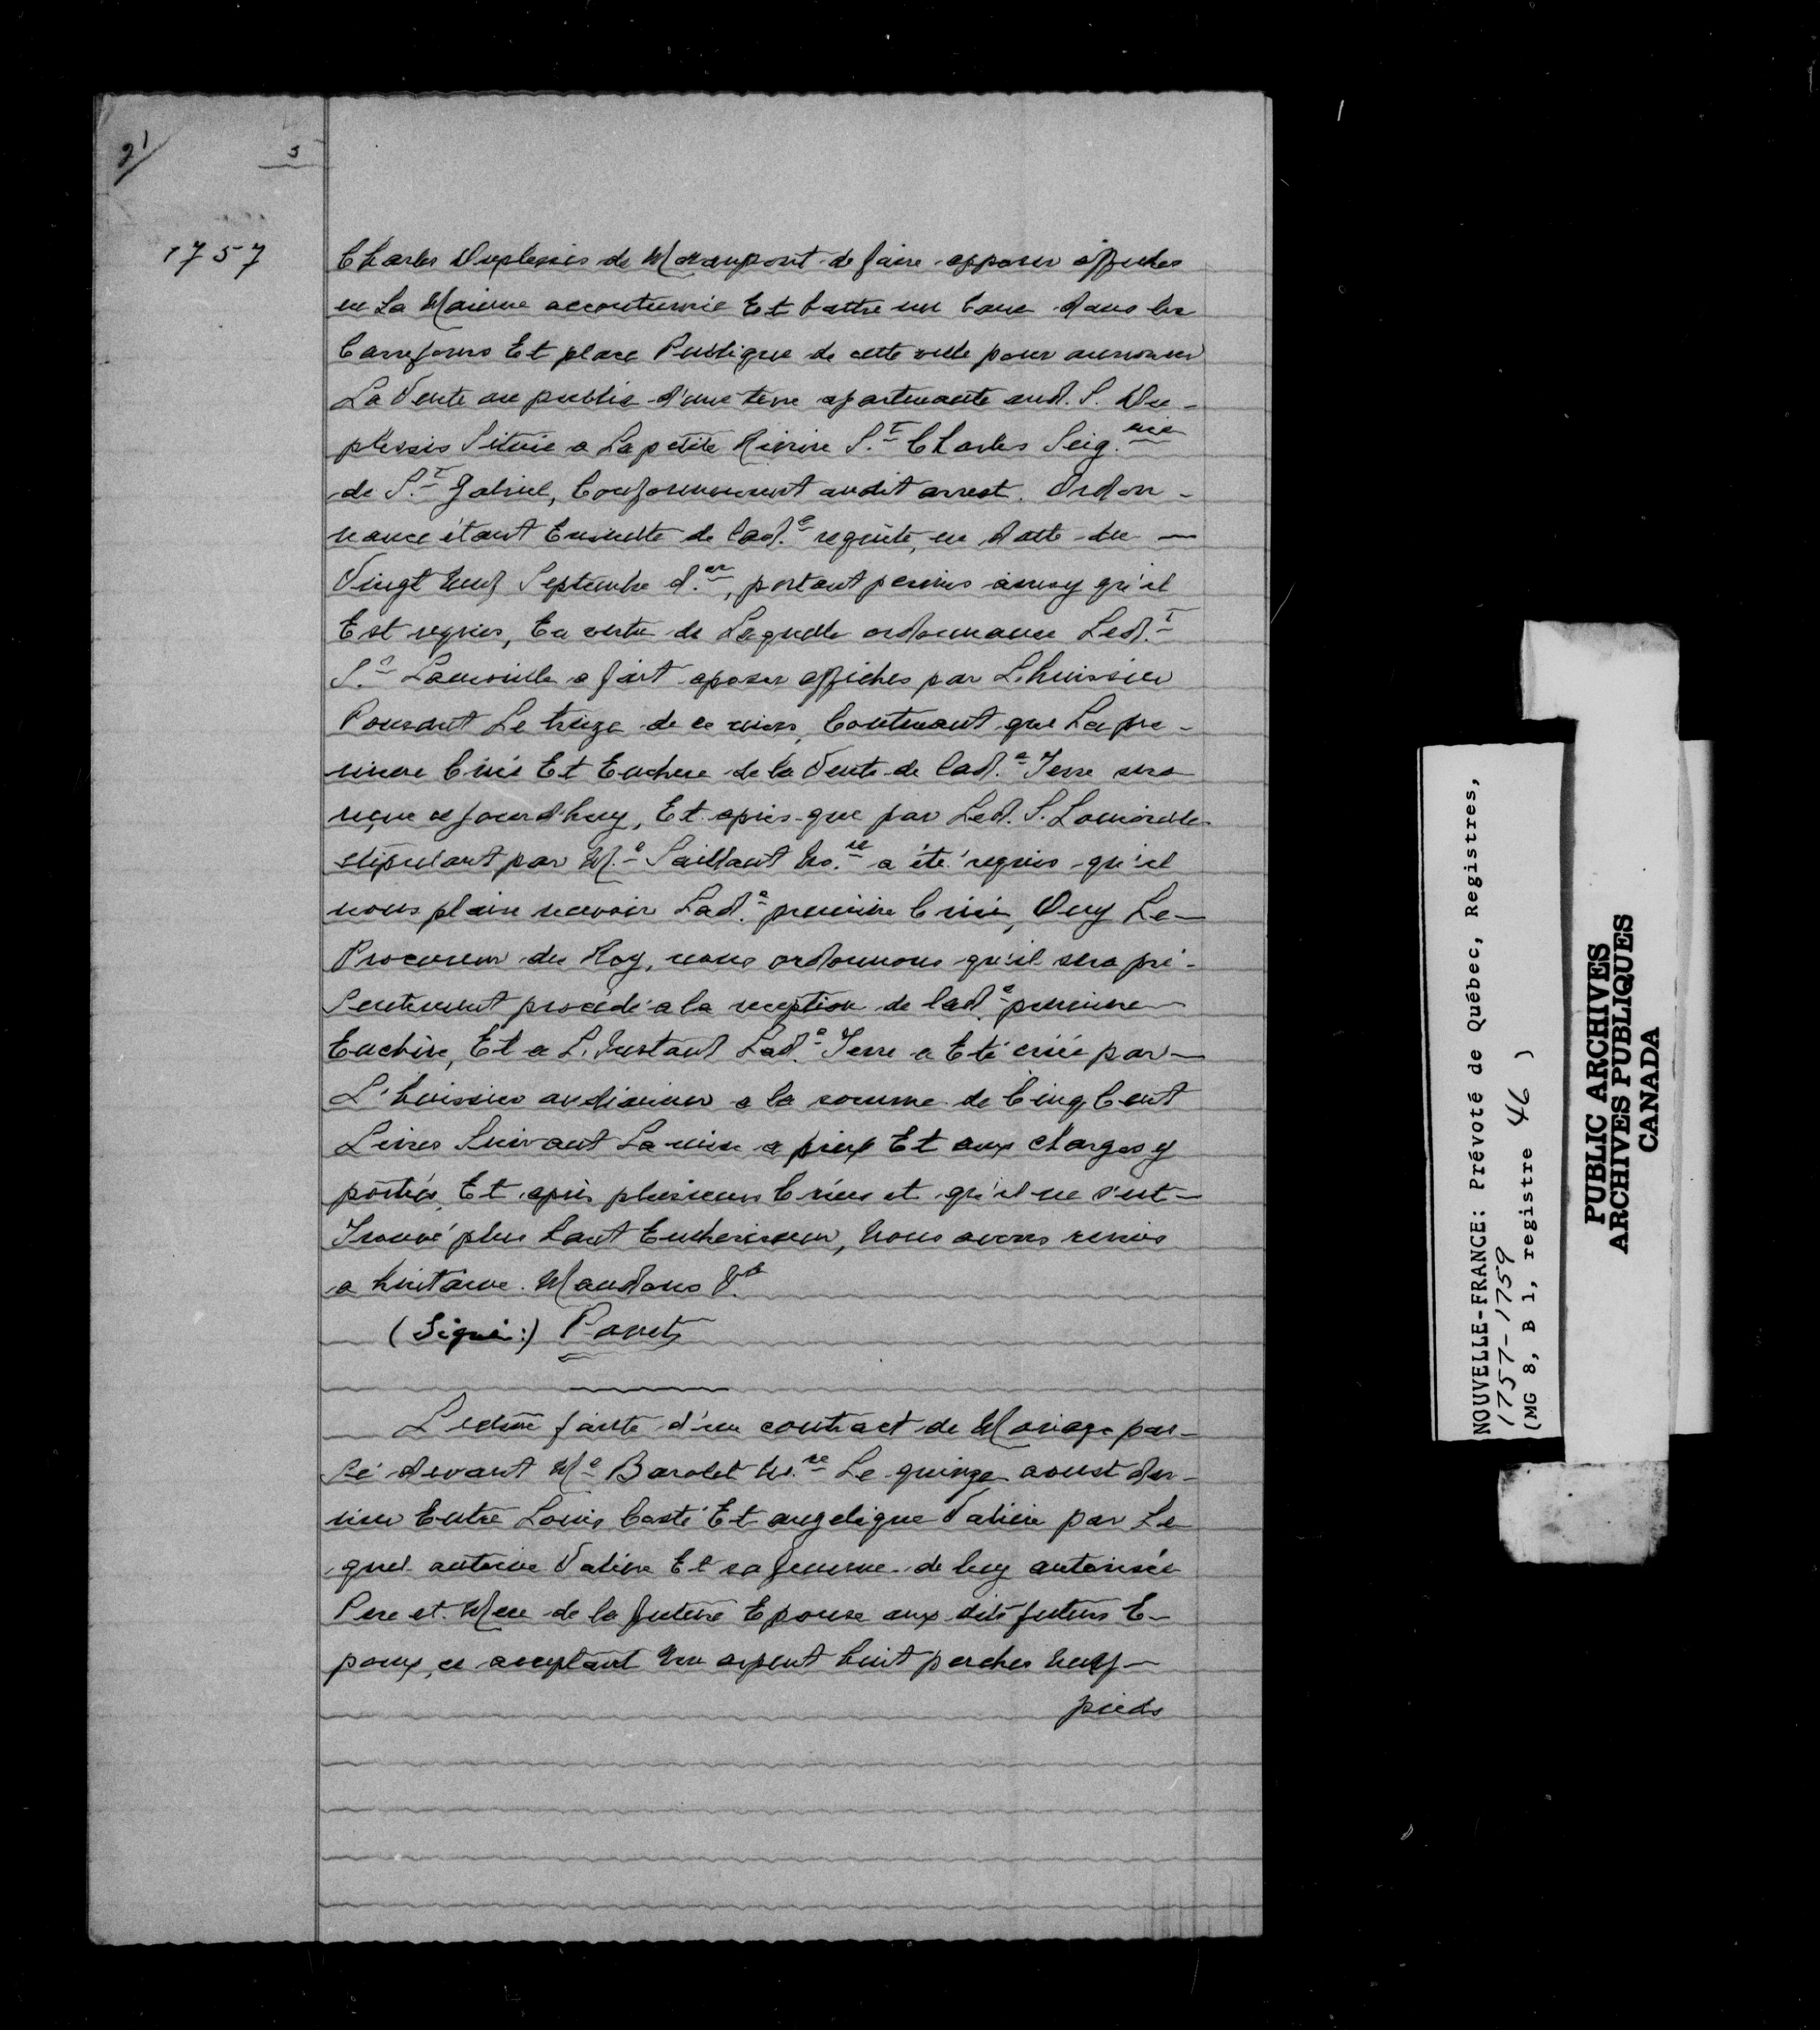 2/
3
1757
Charles Duplessis de Moranpont de faire apposer affiches
en La Maniere accoutumée Et battre un banc dans les
Carrefours Et place Publique de cette ville pour annoncer
La Vente au public d'une terre apartenante aud. S. Du-
plessis Située a La petite Riviere S.t Charles Seig.rie
de S.t Gabriel, Conformement audit arrest. Ordon-
nance étant Ensuitte de lad.e requête, en datte du —
Vingt Neuf Septembre d.er, portant permis ainsy qu'il
Est requis, En vertu de Laquelle ordonnance Led.t
S.r Lanoüille a fait aposer affiches par L'huissier
Poussart Le treize de ce mois, Contenant que La pre-
miere Criée Et Enchere de la Vente de lad.e Terre sera
reçue ce jourd'huy, Et après que par Led. S. Lanoüille
stipulant par M.e Saillant No.re a été requis qu'il
nous plaise recevoir Lad.e premiere Criée, Ouy Le—
Procureur du Roy, nous ordonnons qu'il sera pré-
Sentement procédé a la reception de lad.e premiere—
Enchére, Et a L'Instant Lad.e Terre a Eté criée par—
L'huissier audiancier a la somme de Cinq Cent
Livres Suivant La mise a prix Et aux charges y
portées, Et après plusieurs Criées et qu'il ne s'est—
Trouvé plus haut Encherisseur, Nous avons remis
a huitaine. Mandons &.a
(Signé:) Panet
Lecture faitte d'un contract de Mariage pas-
sé devant M.e Barolet No.re Le quinze aoust der-
nier Entre Louis Costé Et angelique Valiere par Le-
quel antoine Valiere Et sa femme de luy autorisée
Pere et Mere de la future Epouse aux dits futurs E-
poux, ce acceptant Un arpent huit perches neuf—
pieds
NOUVELLE-FRANCE: Prévoté de Québec, Registres,
1757-1759
(MG 8, B 1, registre 46 )
PUBLIC ARCHIVES
ARCHIVES PUBLIQUES
CANADA